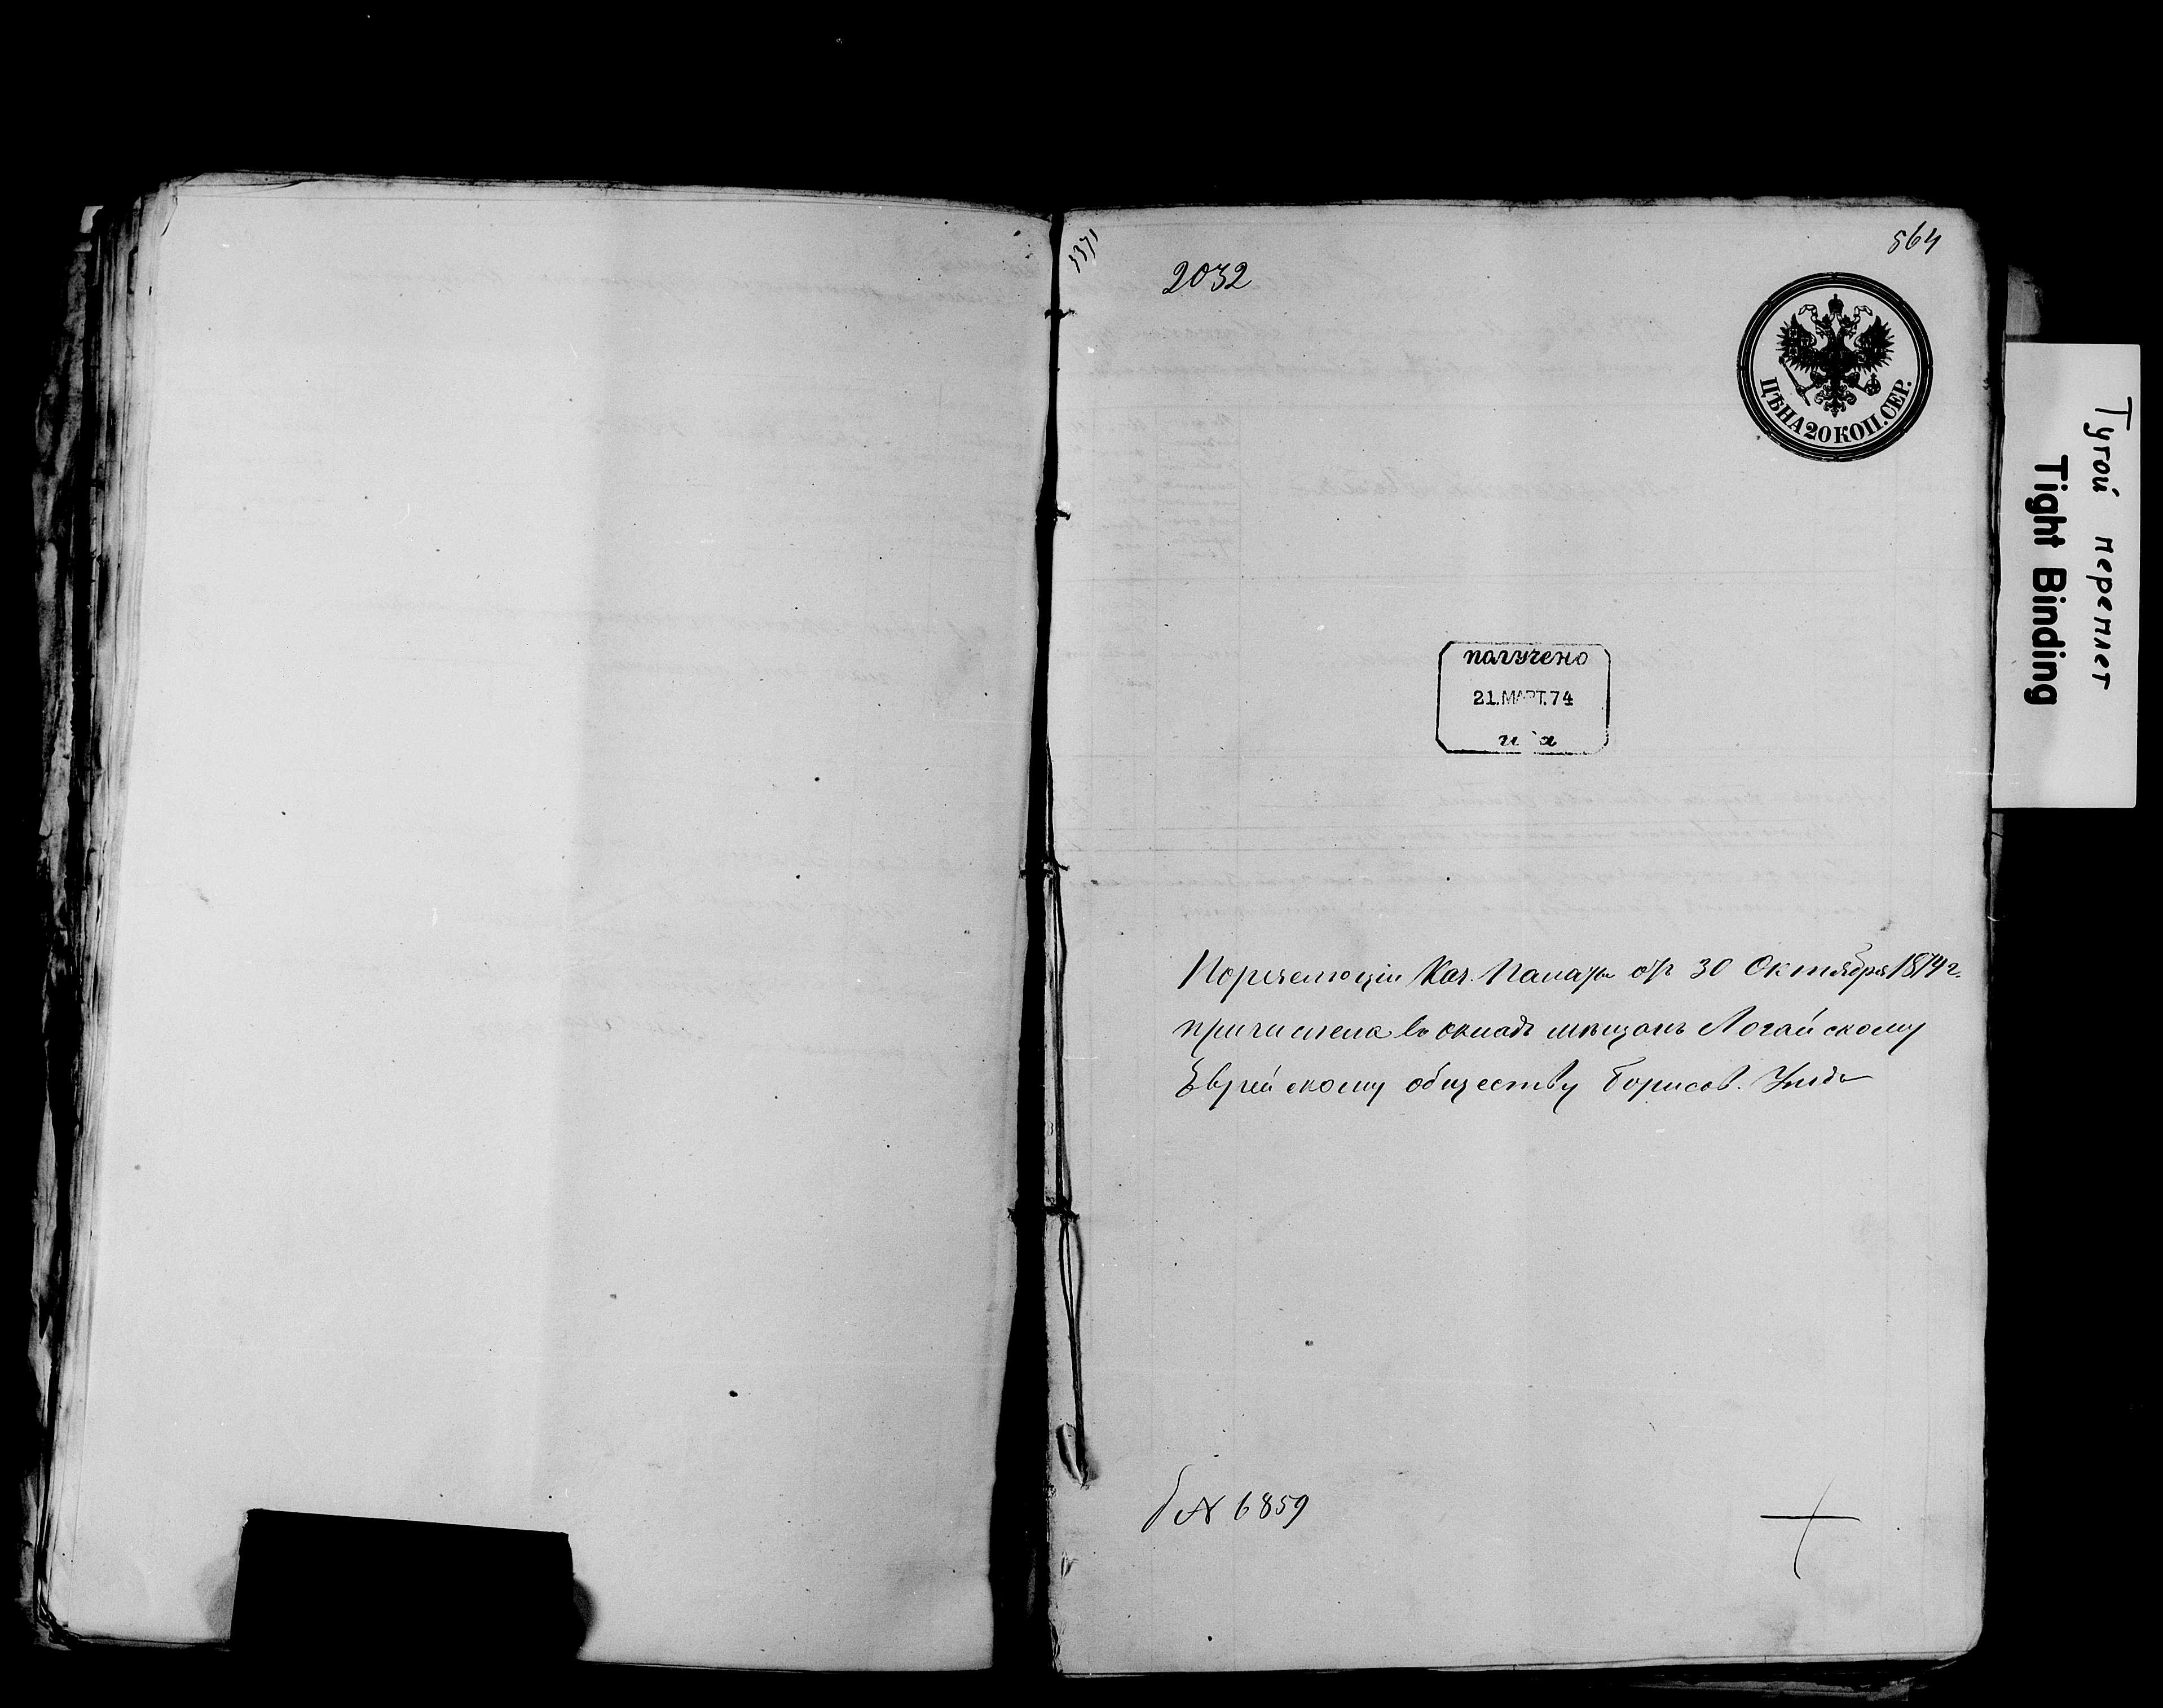 564
3371
2032
ЦѢНА 20 КОП. СЕР.
Тугой переплет
Tight Binding
получено
21.МАРТ.74
Каз. Палаты отъ 30 Октября 1874 г.
причислена въ окладъ мѣщанъ Логойскому
Еврейскому обществу Борисов. Уѣзда
№ 6859